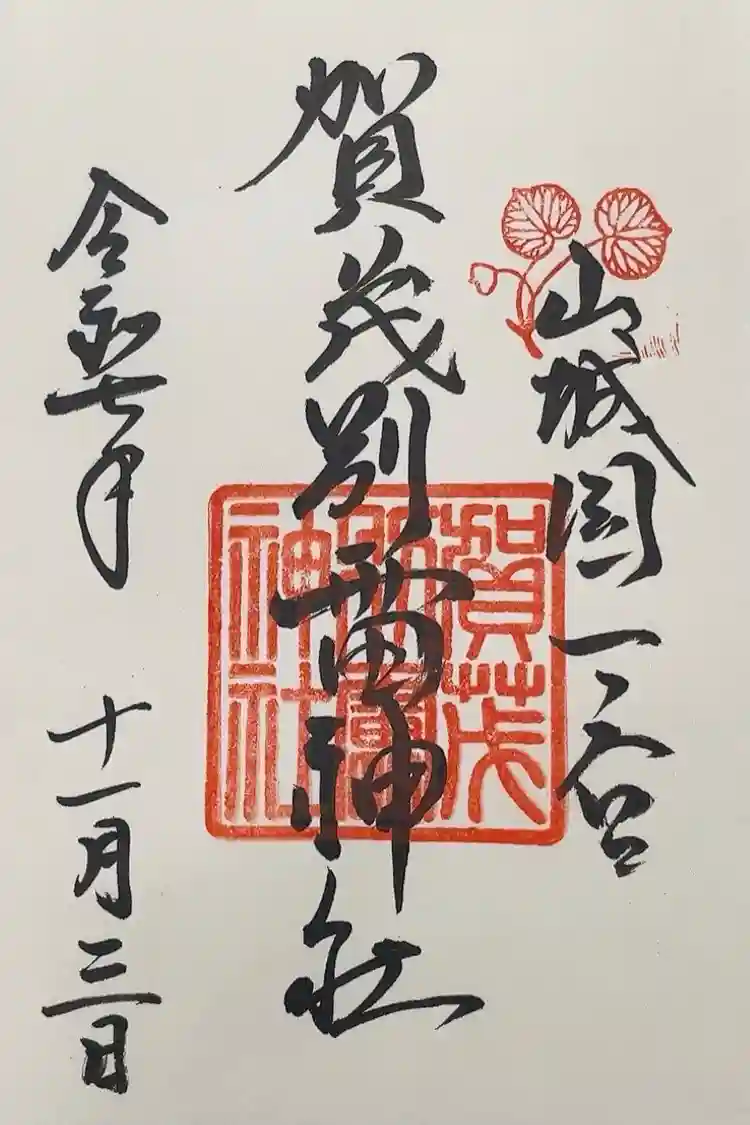 山城國一之宮
賀茂別雷神社
賀茂
別雷
神社
令和七年 十一月三日